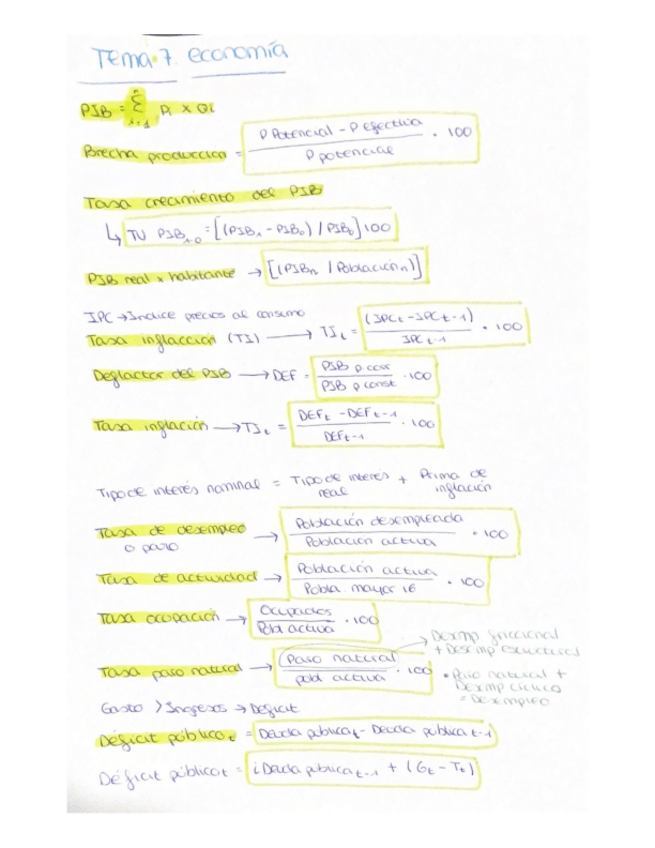 Tema 7. economía
PIB = Σ Pi x Qi
n
i=1
Brecha produccion = P Potencial - P efectiva / P potencial · 100
Tasa crecimiento del PIB
↳ TV PIB₁₋₀ = [(PIB₁ - PIB₀) / PIB₀] 100
PIB real x habitante → [(PIBn / Población n)]
IPC → Indice precios al consumo
Tasa inflacción (TI) → TIt = (IPCt - IPCt-1) / IPCt-1 · 100
Deflactor del PIB → DEF = PIB p corr / PIB p const · 100
Tasa inflación → TIt = DEFt - DEFt-1 / DEFt-1 · 100
Tipo de interés nominal = Tipo de interés real + Prima de inflación
Tasa de desempleo o paro → Población desempleada / Población activa · 100
Tasa de actividad → Población activa / Pobla. mayor 16 · 100
Tasa ocupación → Ocupados / Pobl activa · 100
Tasa paro natural → Paro natural / pobl activa · 100
→ Desmp friccional
+ Desemp estructural
• Paro natural +
Desemp cíclico
= Desempleo
Gasto > Ingresos → Deficit
Déficit público t = Deuda publica t - Deuda publica t-1
Déficit público t = i Deuda publica t-1 + (Gt - Tt)